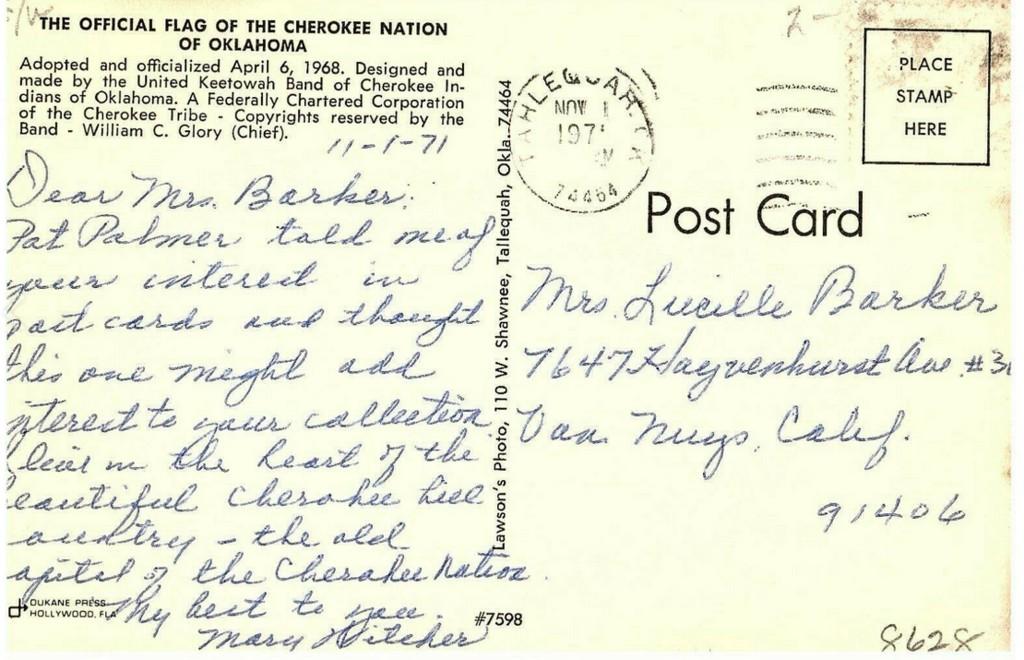 THE OFFICIAL FLAG OF THE CHEROKEE NATION
OF OKLAHOMA
Adopted and officialized April 6, 1968. Designed and
made by the United Keetowah Band of Cherokee In-
dians of Oklahoma. A Federally Chartered Corporation
of the Cherokee Tribe - Copyrights reserved by the
Band - William C. Glory (Chief).
11-1-71
Dear Mrs. Barker:
Pat Palmer told me of
your interest in
post cards and thought
this one might add
interest to your collection
I live in the heart of the
beautiful Cherokee hill
country - the old
capitol of the Cherokee Nation.
My best to you.
Mary
DUKANE PRESS
HOLLYWOOD, FLA
#7598
Lawson's Photo, 110 W. Shawnee, Tallequah, Okla. 74464
TAHLEQUAH, OK
NOV 1
1971
74464
PLACE
STAMP
HERE
Post Card
Mrs. Lucille Barker
7647 Hayvenhurst Ave #
Van Nuys, Calif.
91406
8628